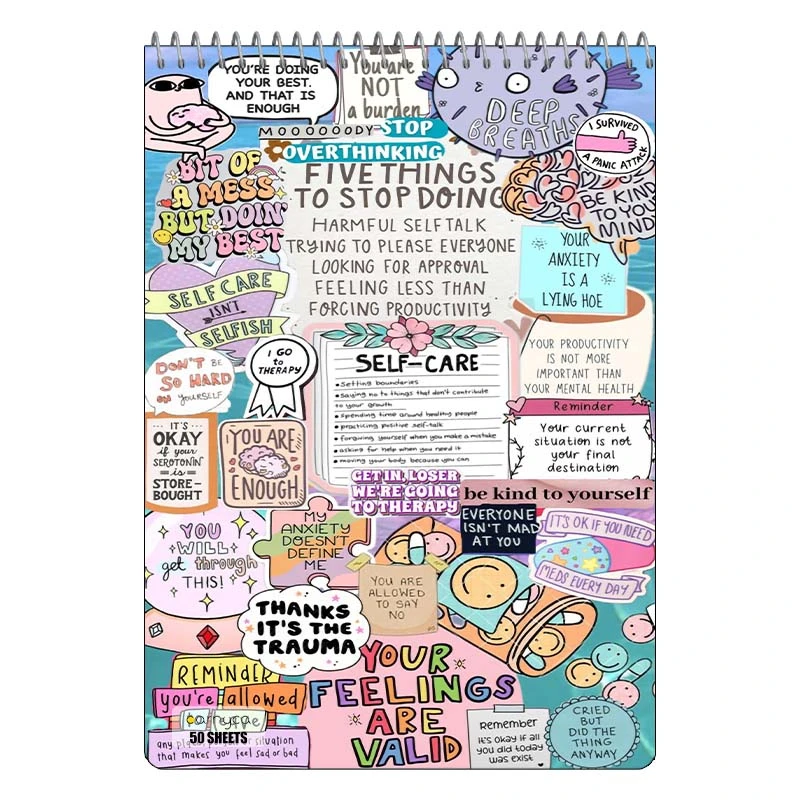 YOU'RE DOING
YOUR BEST.
AND THAT IS
ENOUGH
You are
NOT
a burden
DEEP
BREATHS
I SURVIVED
A PANIC ATTACK
MOOOOOODY
STOP
OVERTHINKING
BIT OF
A MESS
BUT DOIN'
MY BEST
FIVE THINGS
TO STOP DOING
HARMFUL SELF TALK
TRYING TO PLEASE EVERYONE
LOOKING FOR APPROVAL
FEELING LESS THAN
FORCING PRODUCTIVITY
BE KIND
TO YOU
MIND
YOUR
ANXIETY
IS A
LYING HOE
SELF CARE
ISN'T
SELFISH
DON'T BE
SO HARD
ON YOURSELF
I GO
to
THERAPY
SELF-CARE
• Setting boundaries
• saying no to things that don't contribute
to your growth
• spending time around healthy people
• practicing positive self-talk
• forgiving yourself when you make a mistake
• asking for help when you need it
• moving your body because you can
YOUR PRODUCTIVITY
IS NOT MORE
IMPORTANT THAN
YOUR MENTAL HEALTH
Reminder
Your current
situation is not
your final
destination
IT'S
OKAY
if your
SEROTONIN
IS
STORE-
BOUGHT
YOU ARE
ENOUGH
GET IN, LOSER
WE'RE GOING
TO THERAPY
be kind to yourself
EVERYONE
ISN'T MAD
AT YOU
IT'S OK IF YOU NEED
MEDS EVERY DAY
YOU
WILL
get through
THIS!
MY
ANXIETY
DOESN'T
DEFINE
ME
YOU ARE
ALLOWED
TO SAY
NO
THANKS
IT'S THE
TRAUMA
REMINDER
you're allowed
to
any place, person or situation
that makes you feel sad or bad
50 SHEETS
YOUR
FEELINGS
ARE
VALID
Remember
it's okay if all
you did today
was exist
CRIED
BUT
DID THE
THING
ANYWAY